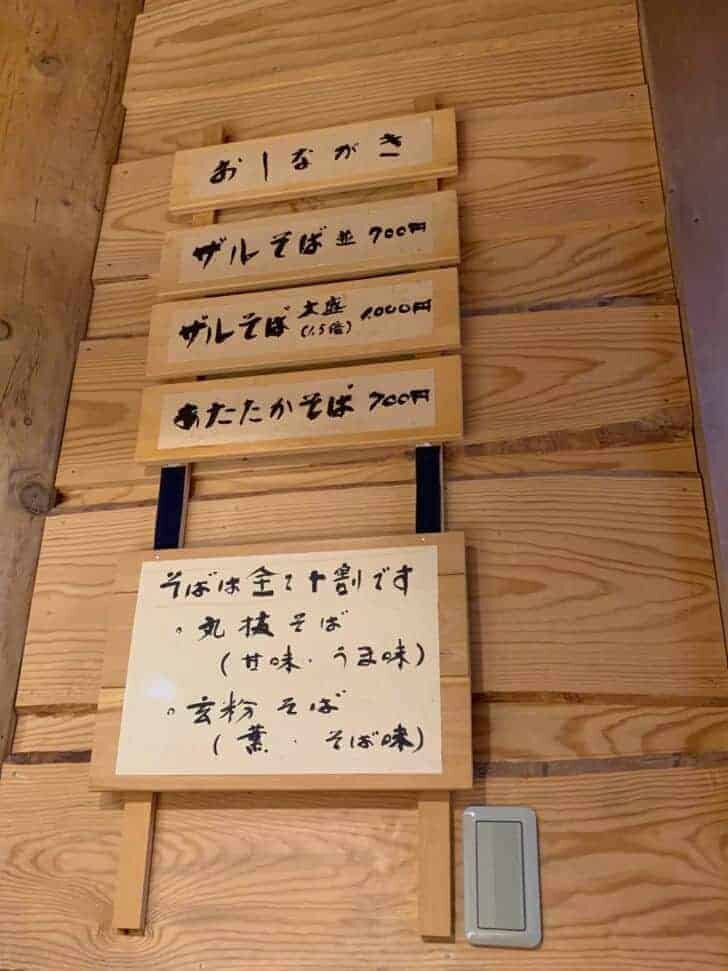 おしながき
ザルそば 並 700円
ザルそば 大盛 (1.5倍) 1.000円
あたたかそば 700円
そばは全て十割です
。丸抜そば
(甘味・うま味)
。玄粉そば
(薫・そば味)